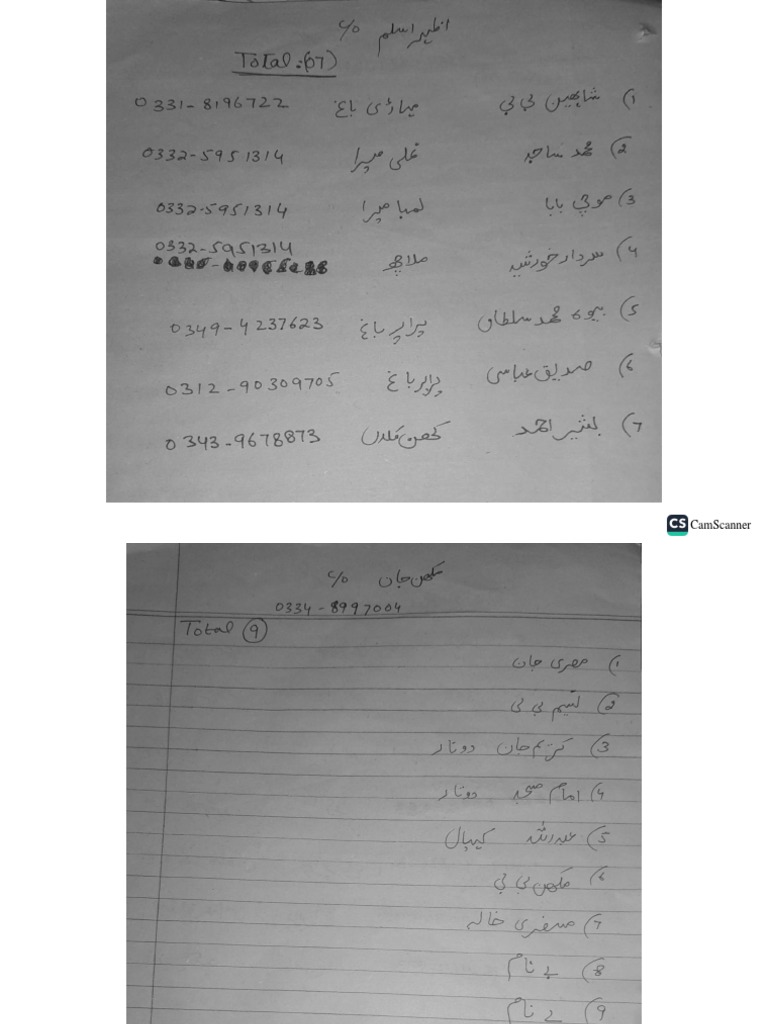 اظہر اسلم c/o
Total:(07)
1) شاہین بی بی میاڑی باغ 0331-8196722
2) محمد ساجد علی میرا 0332-5951314
3) موچی بابا لمبا میرا 0332-5951314
4) سردار خورشید ملاچھ 0332-5951314
5) بیوہ محمد سلطان پراپر باغ 0349-4237623
6) صدیق عباسی پراپر باغ 0312-90309705
7) بشیر احمد 0343-9678873
CS CamScanner
مکھن جان c/o
0334-8997004
Total (9)
1) مصری جان
2) نسیم بی بی
3) کریم جان دونار
4) امام مسجد دونار
5) عبدالرشید کیپال
6) مکھن بی بی
7) صفری خالہ
8) بے نام
9) بے نام